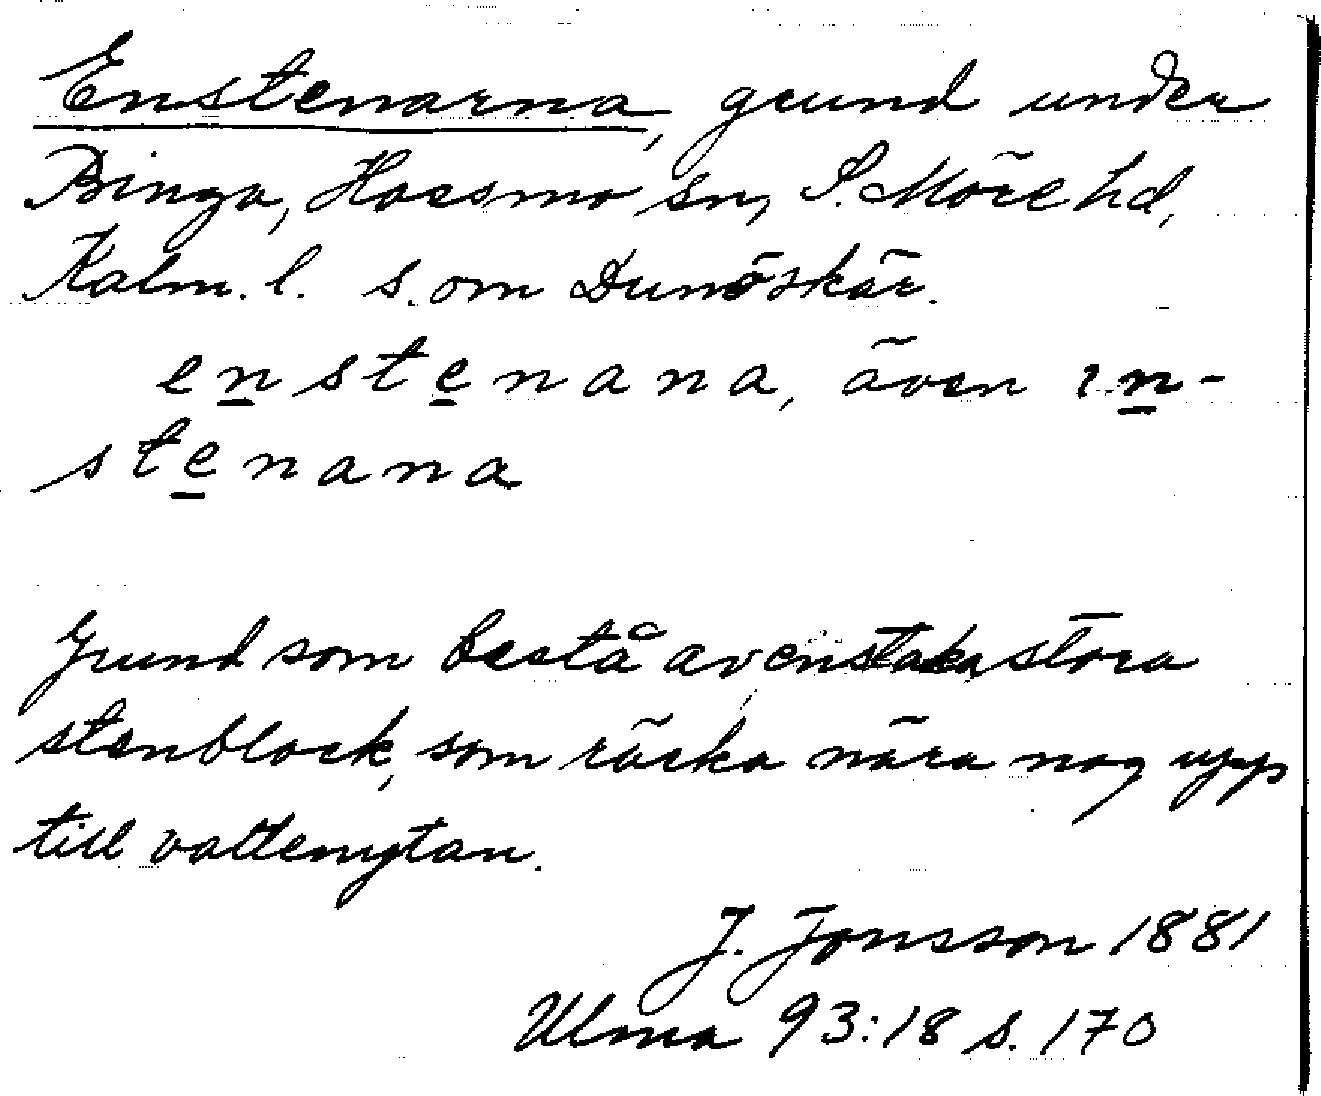 Enstenarna, grund under
Binga, Hossmo sn, S. Möre hd,
Kalm. l. s. om Dunöskär.
enstenana, även in-
stenana
Grund som bestå av enstaka stora
stenblock, som räcka nära nog upp
till vattenytan.
J. Jonsson 1881
Ulma 93:18 s. 170